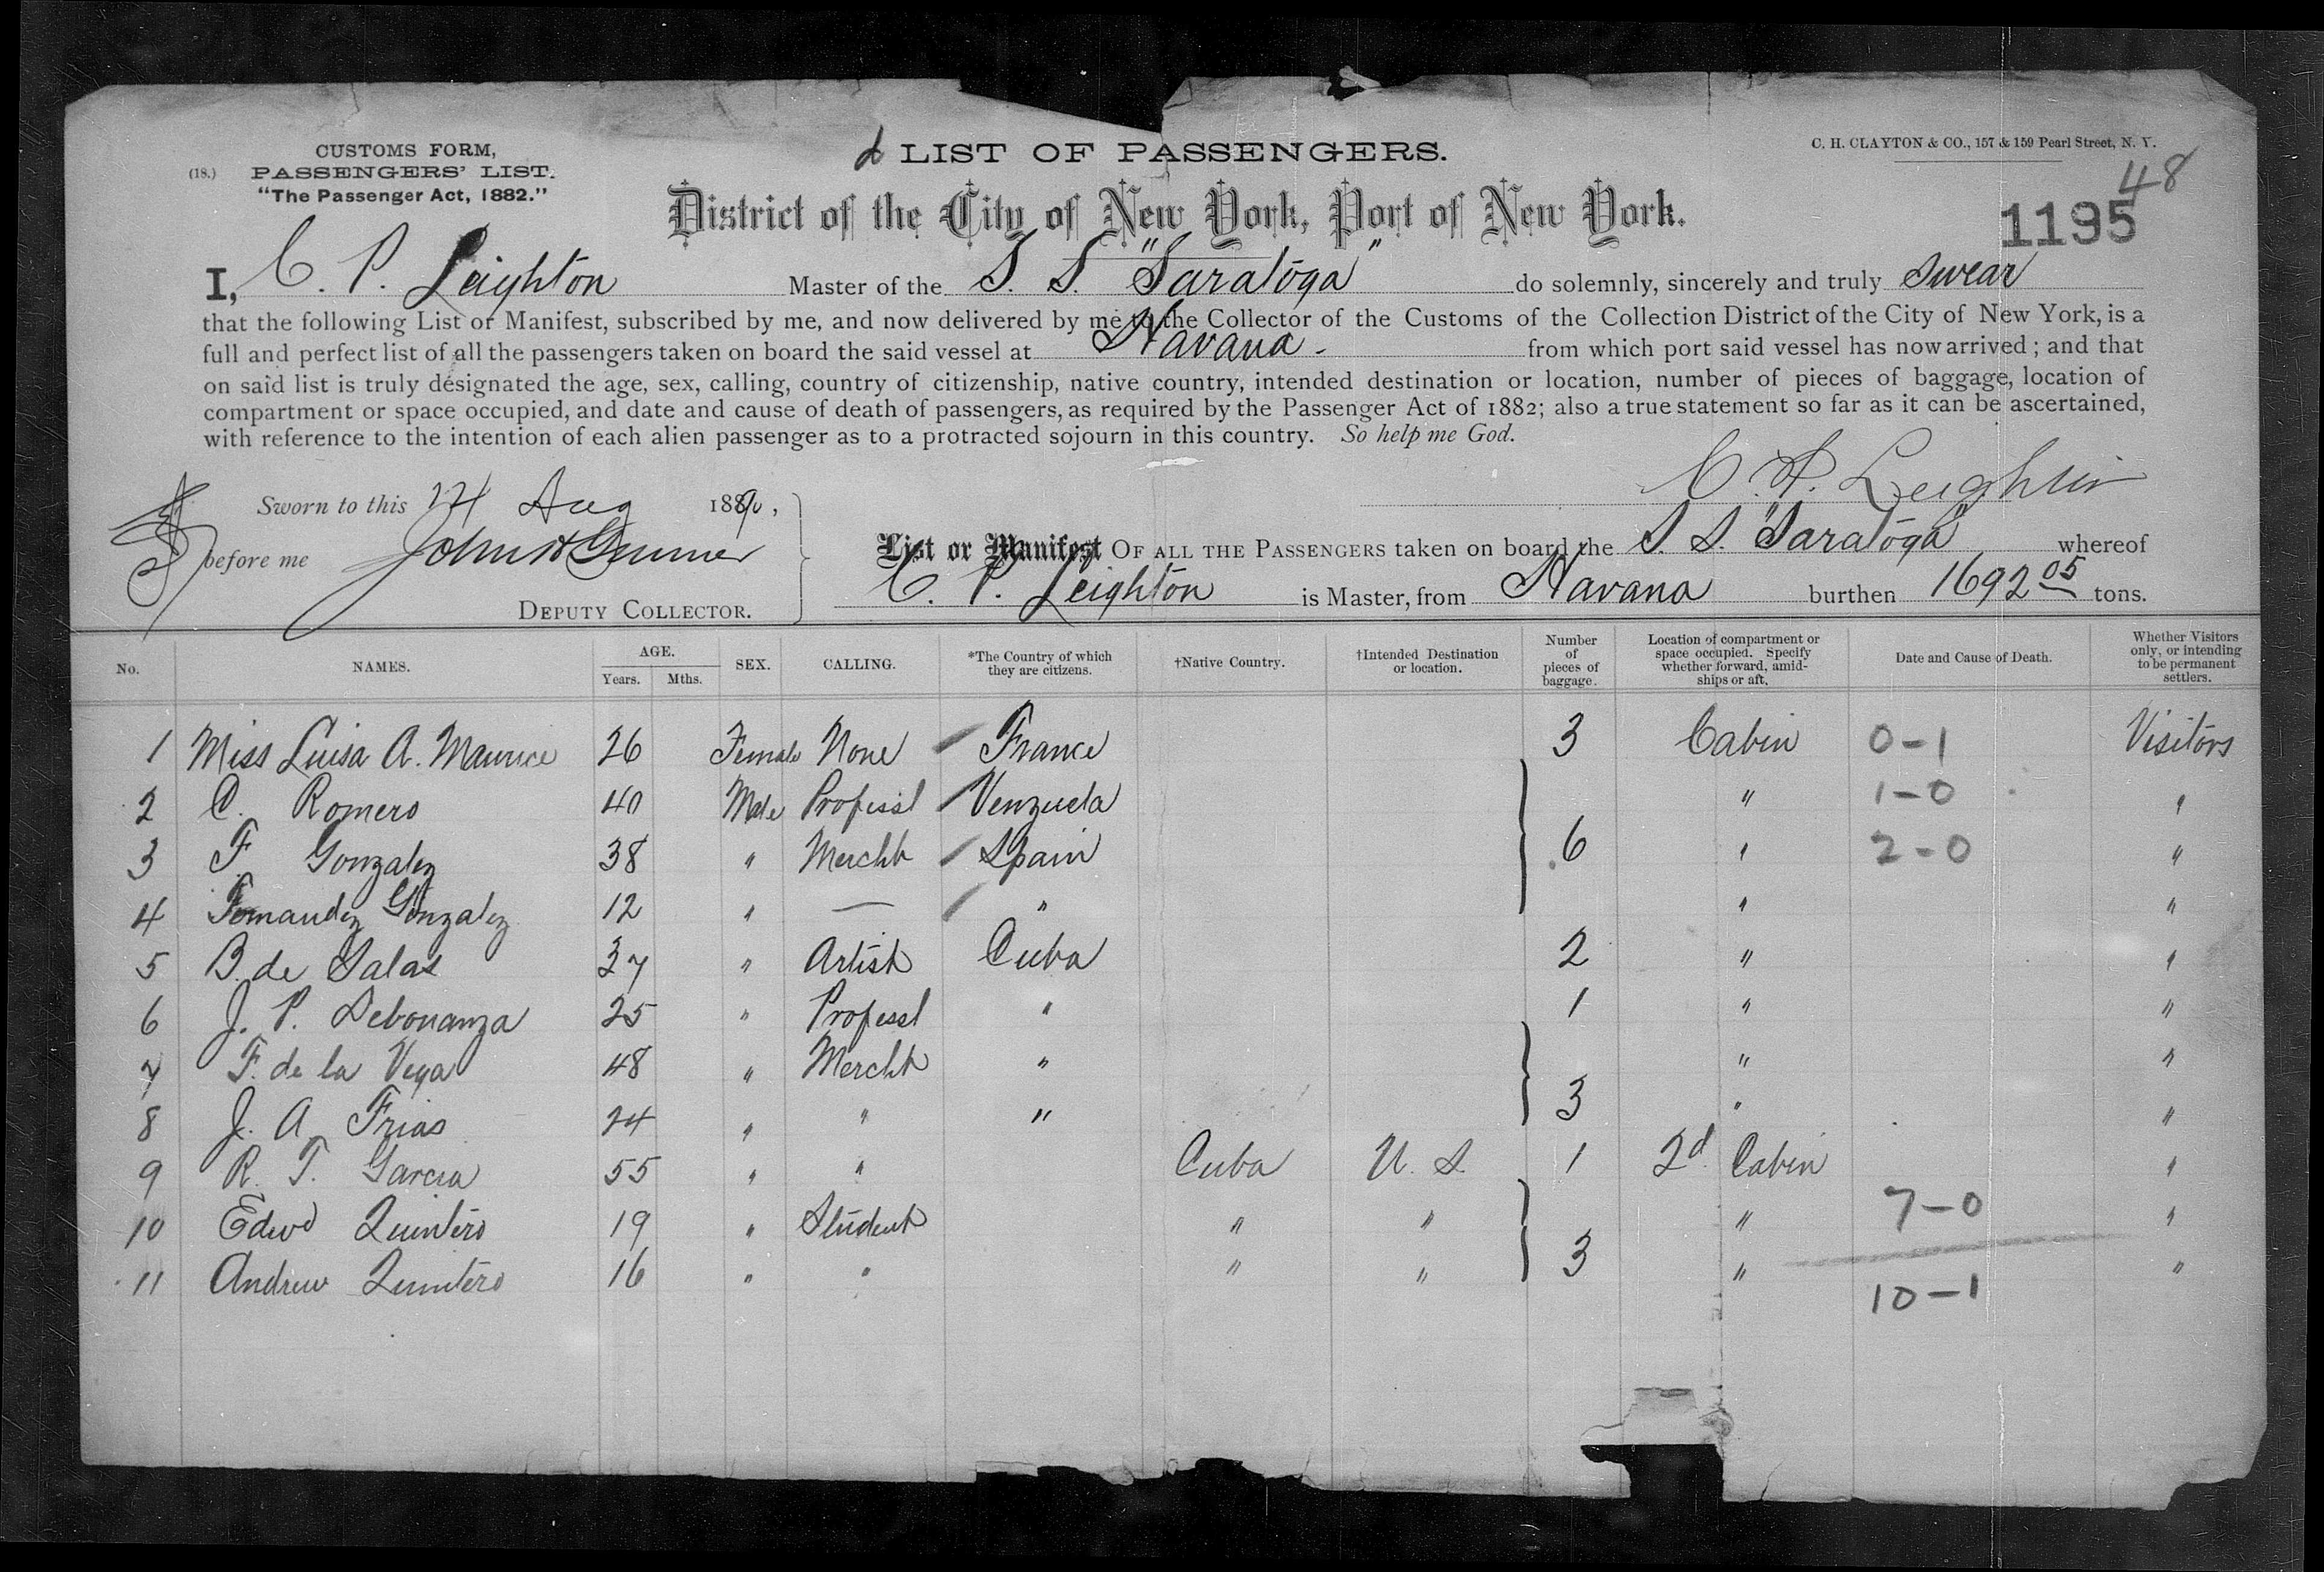 CUSTOMS FORM,
(18.) PASSENGERS' LIST.
"The Passenger Act, 1882."
LIST OF PASSENGERS.
C. H. CLAYTON & CO., 157 & 159 Pearl Street, N. Y.
48
District of the City of New York, Port of New York.
1195
I, C. P. Leighton Master of the S. S. "Saratoga" do solemnly, sincerely and truly swear
that the following List or Manifest, subscribed by me, and now delivered by me to the Collector of the Customs of the Collection District of the City of New York, is a
full and perfect list of all the passengers taken on board the said vessel at Havana - from which port said vessel has now arrived; and that
on said list is truly designated the age, sex, calling, country of citizenship, native country, intended destination or location, number of pieces of baggage, location of
compartment or space occupied, and date and cause of death of passengers, as required by the Passenger Act of 1882; also a true statement so far as it can be ascertained,
with reference to the intention of each alien passenger as to a protracted sojourn in this country. So help me God.
C. P. Leighton
Sworn to this Aug 188 ,
before me John
DEPUTY COLLECTOR.
List or Manifest OF ALL THE PASSENGERS taken on board the S. S. "Saratoga" whereof
C. P. Leighton is Master, from Havana burthen 1692 05 tons.
No. NAMES. AGE. Years. Mths. SEX. CALLING. *The Country of which they are citizens. †Native Country. †Intended Destination or location. Number of pieces of baggage. Location of compartment or space occupied. Specify whether forward, amidships or aft. Date and Cause of Death. Whether Visitors only, or intending to be permanent settlers.
1 Miss Luisa A. Maurice 26 Female None France 3 Cabin 0-1 Visitors
2 C. Romero 40 Male Professl Venzuela " 1-0 "
3 F. Gonzalez 38 " Mercht Spain 6 " 2-0 "
4 Fernandez Gonzalez 12 " — " " "
5 B. de Salas 37 " Artist Cuba 2 " "
6 J. P. Debonanza 25 " Professl " 1 " "
7 F. de la Vega 48 " Mercht " " "
8 J. A. Frias 24 " " " 3 " "
9 R. T. Garcia 55 " " Cuba U. S. 1 2d Cabin "
10 Edwd Quintero 19 " Student " " " 7-0 "
11 Andrew Quintero 16 " " " " 3 " "
10-1